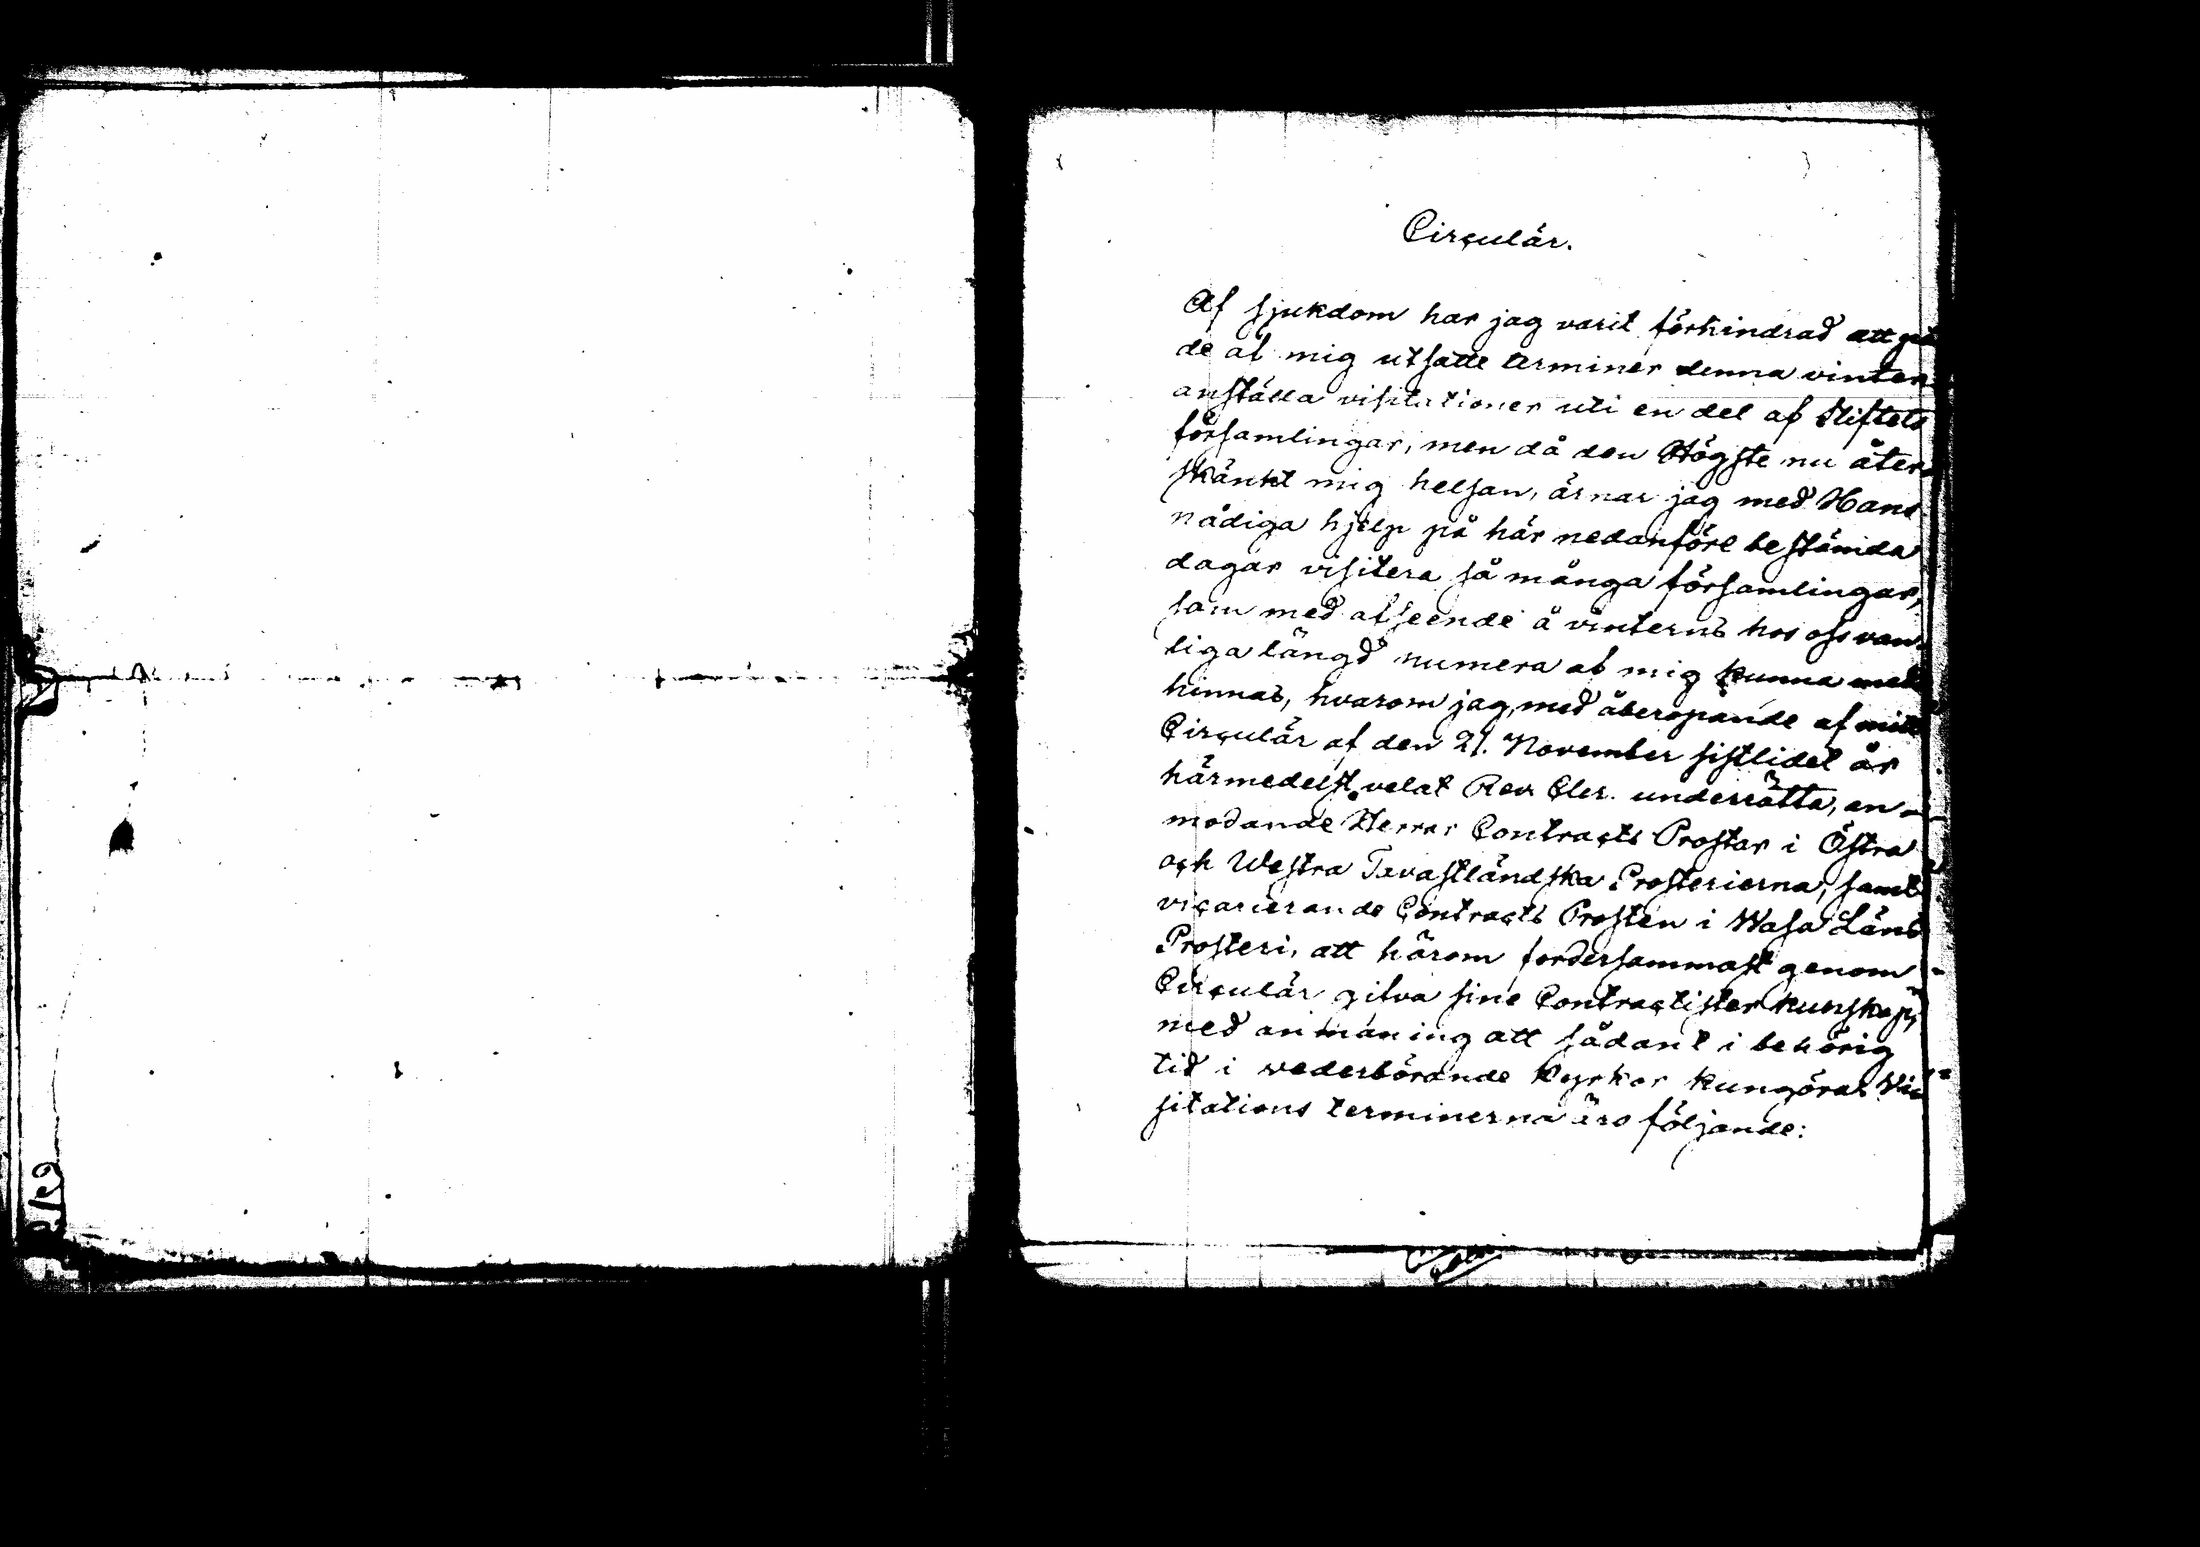 Circulär.
Af sjukdom har jag varit förhindrad att på
de af mig utsatte terminer denna vinter
anställa visitationer uti en del af Stiftets
församlingar, men då den Högste nu åter
skänkt mig helsan, ärnar jag med Hans
nådiga hjelp på här nedanföre bestämda
dagar visitera så många församlingar,
som med afseende å vinterns hos oss van-
liga längd numera af mig kunna med
hinnas, hvarom jag, med åberopande af mitt
Circulär af den 21. November sistlidet år
härmedelst velat Rev Cler. underrätta, an-
modande Herrar Contracts Prostar i Östra
och Westra Tavastländska Prosterierna, samt
vicarierande Contracts Prosten i Wasa Läns
Prosteri, att härom fordersammast genom
Circulär gifva sine Contractister kunskap,
med anmaning att sådant i behörig
tid i vederbörande Kyrkor kungöras Vi-
sitations terminerna äro följande: